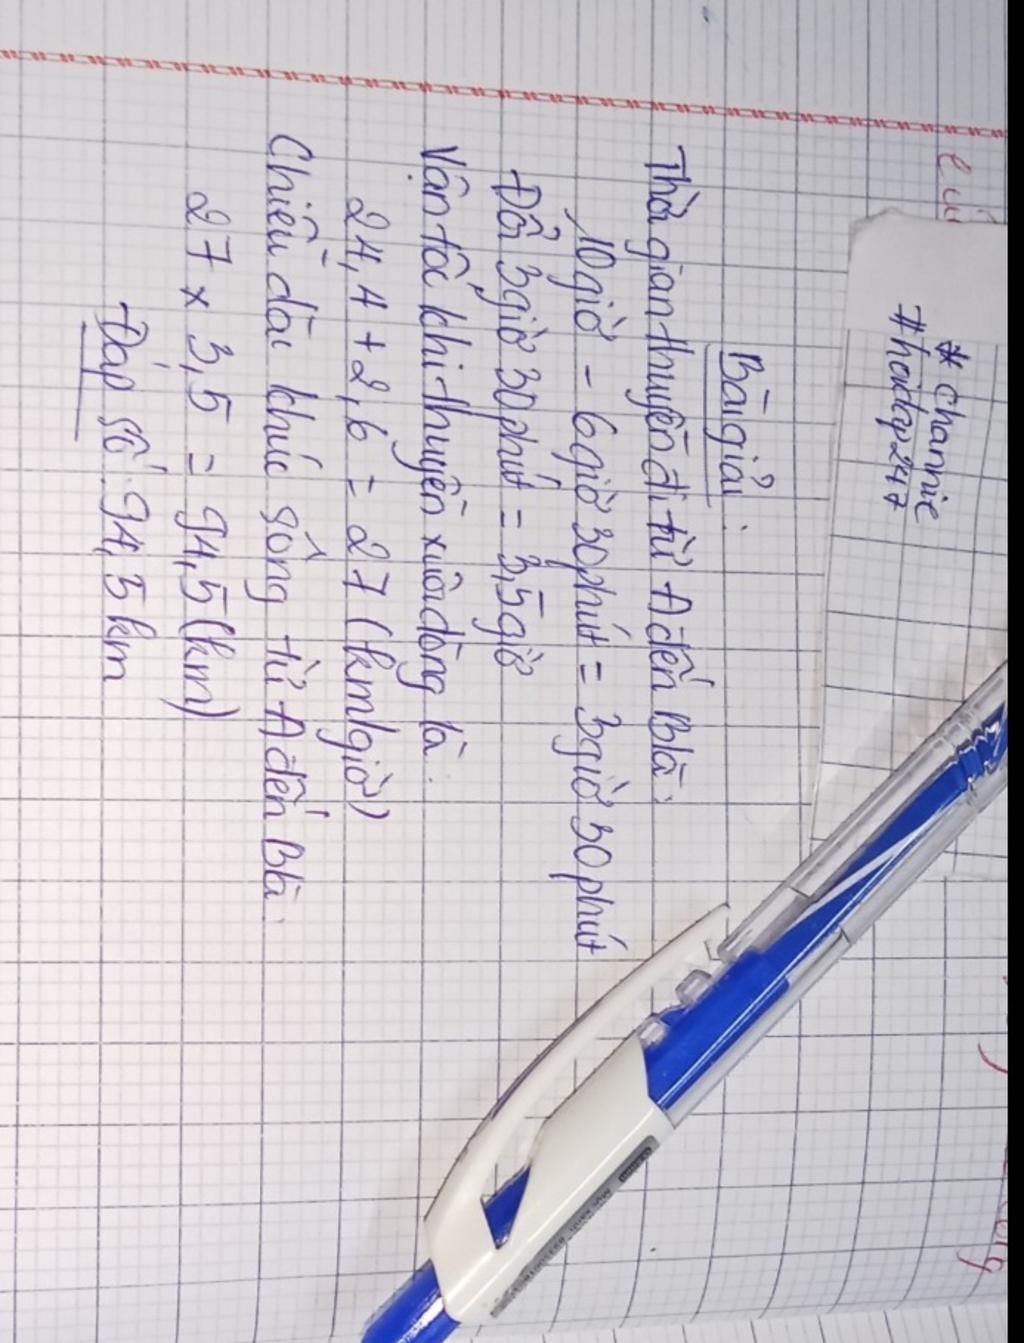 * channie
# hoidap247
Bài giải:
Thời gian thuyền đi từ A đến B là:
10 giờ - 6 giờ 30 phút = 3 giờ 30 phút
Đổi 3 giờ 30 phút = 3,5 giờ
Vận tốc khi thuyền xuôi dòng là:
24,4 + 2,6 = 27 (km/giờ)
Chiều dài khúc sông từ A đến B là:
27 x 3,5 = 94,5 (km)
Đáp số: 94,5 km